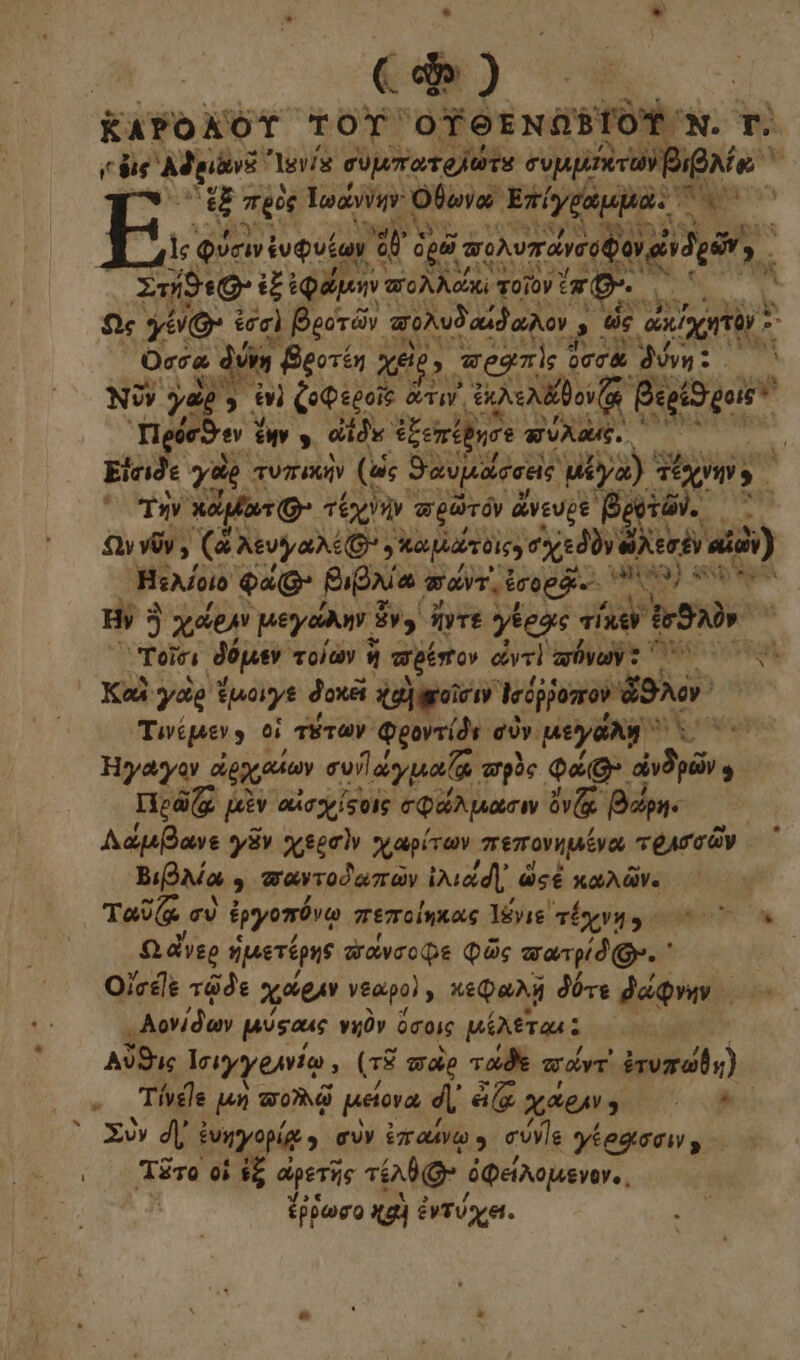 ( φ )
ΚΑΡΟΛΟΥ ΤΟΥ ΟΥΘΕΝΩΒΙΟΥ Ν. Γ.
εἰς Ἀδριανȣ̃ Ἰȣνίȣ συμπατριώτȣ συμμίκτων βιβλία
ἓξ πρὸς Ἰωάννην Ὄθωνα Ἐπίγραμμα.
Εἰς φύσιν ἐυφυέων ὅθ᾽ ὁρῶ πολυπάνσοφον ἀνδρῶν,
Στήθεος ἐξ ἐφάμην πολλάκι τοῖον ἔπος.
Ως γένος ἐσσὶ βροτῶν πολυδαίδαλον, ὡς ἀκίχητον:
Οσσα δύνῃ βροτέη χεὶρ, πραπὶς ὅσσα δύνῃ:
Νῦν γὰρ, ἐνὶ ζοφεροῖς ἅτιν᾽ ἐκλελάθοντα βερέθροις
Πρόσθεν ἔην, ἀίδȣ ἐξεπέρησε πύλαις.
Εἴσιδε γὰρ τυπικὴν (ὡς θαυμάσσεις μέγα) τέχνην,
Τὴν καμάτος τέχνην πρῶτόν ἄνευρε βροτῶν.
Ων νῦν, (ἃ λευγαλέος, καμάτοις, σχεδὸν ὤλεσεν αἰὼν)
Ηελίοιο φάος βιβλία πάντ᾽ ἐσορᾷ.
Ην ἢ χάριν μεγάλην ȣ̓ν, ἤντε γέρας τίνεν ἐσθλὸν
Τοῖσι δόμεν τοίων ἢ πρέπον ἀντὶ πόνων:
Καὶ γὰρ ἔμοιγε δοκεῖ καὶ τοῖσιν ἰσόῤῥοπον ἆθλον
Τινέμεν, οἱ τȣ́των φροντίδι σὺν μεγάλῃ
Ηγαγον ἀρχαίων συντάγματα πρὸς φάος ἀνδρῶν,
Πρῶτα μὲν αἰσχίστοις σφάλμασιν ὄντα βάρη.
Λάμβανε γȣ̃ν χερσὶν χαρίτων πεπονημένα τρισσῶν
Βιβλία, παντοδαπῶν ἰλιάδ᾽ ὡσέ καλῶν.
Ταῦτα σὺ ἐργοπόνῳ πεποίηκας Ἰȣ́νιε τέχνῃ,
Ω ἄνερ ἡμετέρης πάνσοφε φῶς πατρίδος.
Οἴσετε τῷδε χάριν νεαροὶ, κεφαλῇ δότε δάφνην
Ἀονίδων μύσταις νηὸν ὅσοις μέλεται:
Αὖθις Ἰσιγγρινίῳ, (τȣ̃ πὰρ τάδε πάντ᾽ ἐτυπώθη)
Τίνετε μὴ πολλῷ μείονα δ᾽ εἶτα χάριν,
Σὺν δ᾽ ἐυηγορίῃ, σὺν ἐπαίνῳ, σύντε γέρασσιν,
Τȣ̃το οἱ ἐξ ἀρετῆς τέλθος ὀφειλομενον.
ἔῤῥωσο καὶ ἐντύχει.